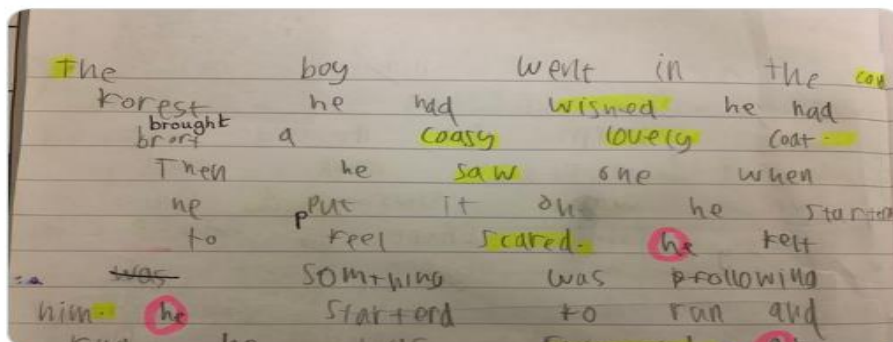 The boy went in the
Forest he had wished he had
brought
brort a coasy lovely coat.
Then he saw one when
he put it on he started
to feel scared. he felt
was somthing was following
him. he starterd to run and